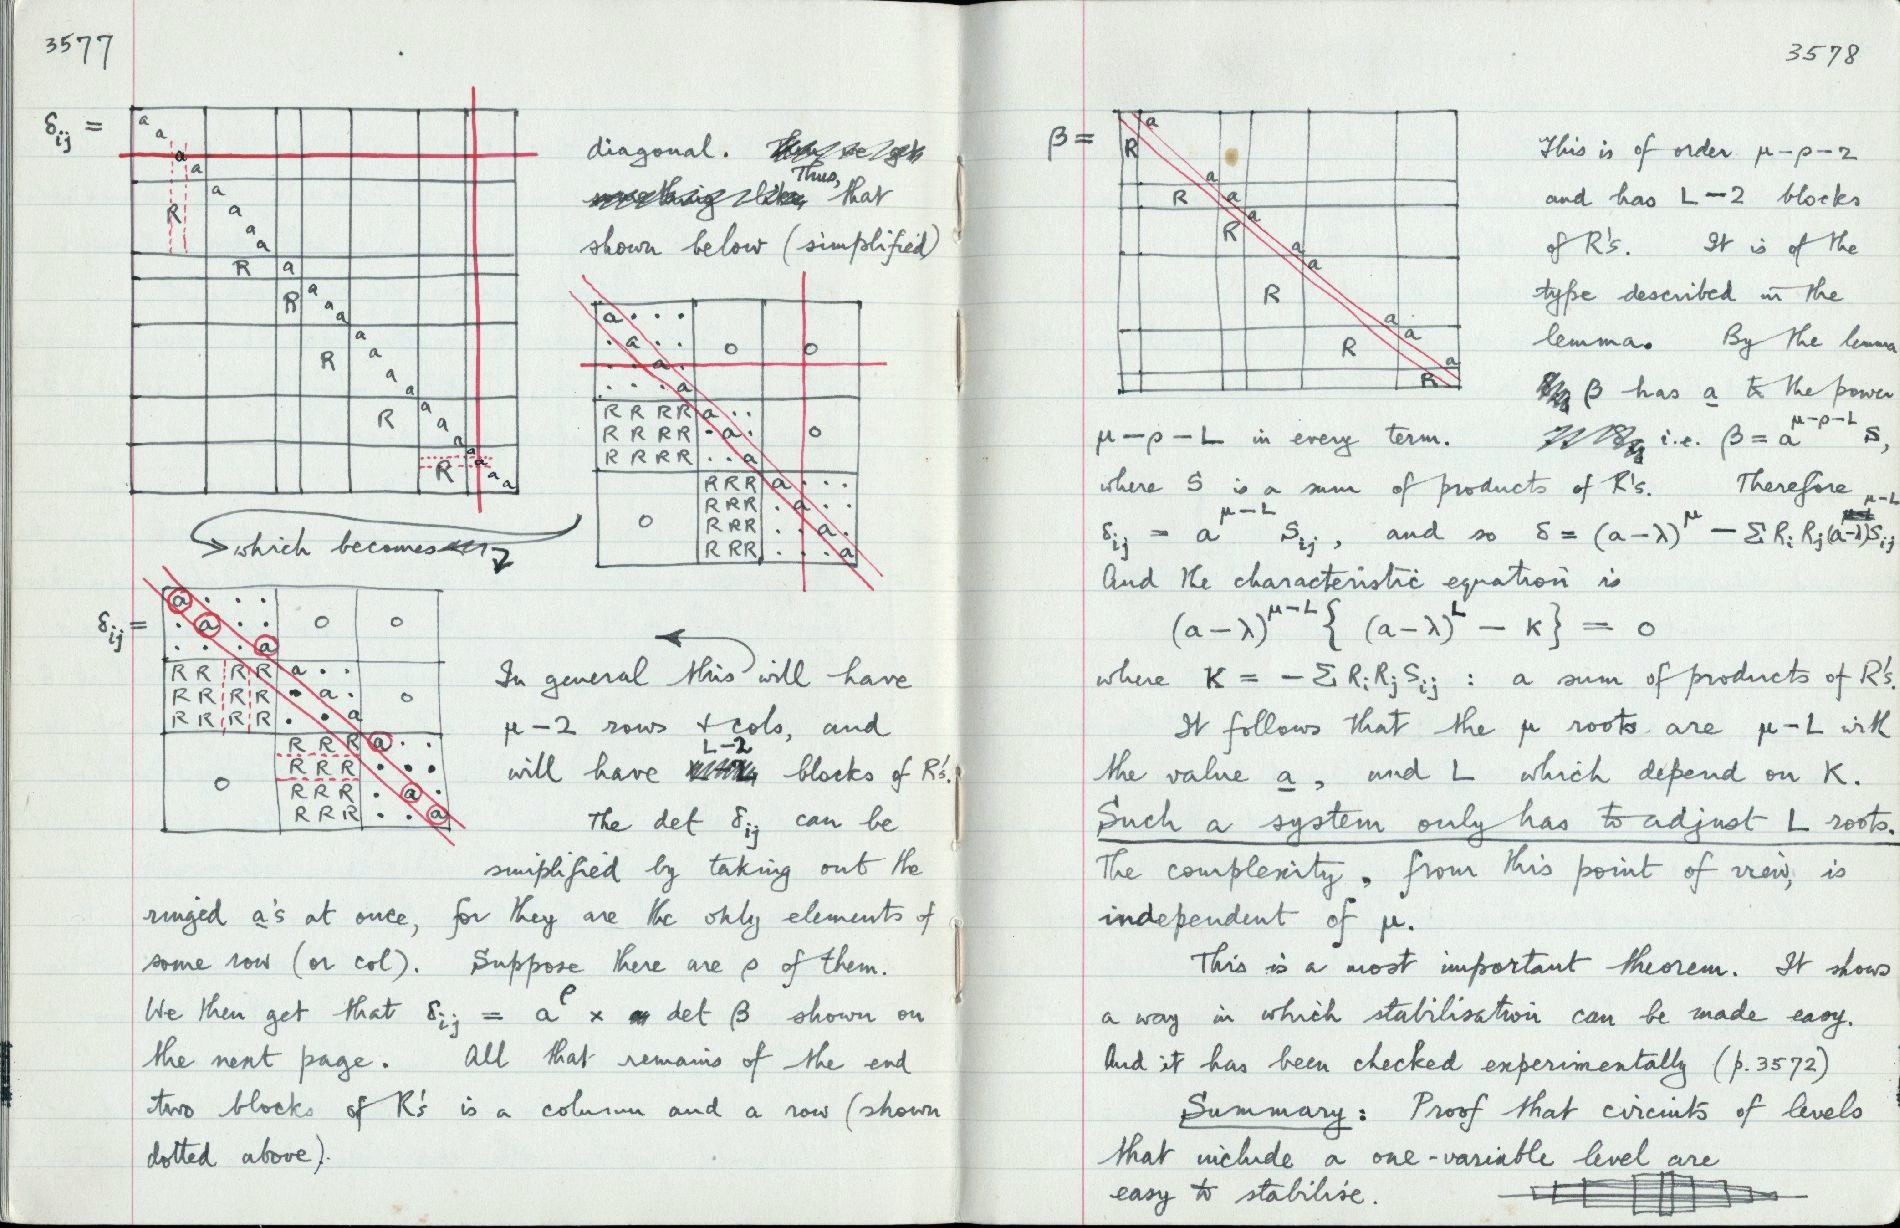 3577
δij =
a
a
a
a
a
a
a
a
R
R
a
R
a
a
a
a
R
a
a
a
R
a
a
a
R
a
a
a
a
diagonal.
Thus, that
shown below (simplified)
a . . .
. a . . o o
. . a .
. . . a
R R R R a . .
R R R R . a . o
R R R R . . a
R R R a . . .
R R R . a . .
o R R R . . a .
R R R . . . a
which becomes
δij =
a . . .
. a . . o o
. . . a
R R R R a . .
R R R R . a . o
R R R R . . a
R R R a . .
R R R . . .
o R R R . a .
R R R . . a
In general this will have
μ-2 rows & cols, and
will have L-2 blocks of R's.
The det δij can be
simplified by taking out the
ringed a's at once, for they are the only elements of
some row (or col). Suppose there are ρ of them.
We then get that δij = a^ρ × det β shown on
the next page. All that remains of the end
two blocks of R's is a column and a row (shown
dotted above).
3578
β =
a
R
a
R a
a
R
a
a
R
a
R a
a
R
This is of order μ-ρ-2
and has L-2 blocks
of R's. It is of the
type described in the
lemma. By the lemma
β has a to the power
μ-ρ-L in every term. i.e. β = a^μ-ρ-L S,
where S is a sum of products of R's. Therefore
δij = a^μ-L Sij, and so δ = (a-λ)^μ - Σ Ri Rj (a-λ)^μ-L Sij
And the characteristic equation is
(a-λ)^μ-L { (a-λ)^L - K } = 0
where K = - Σ Ri Rj Sij : a sum of products of R's.
It follows that the μ roots are μ-L with
the value a, and L which depend on K.
Such a system only has to adjust L roots.
The complexity, from this point of view, is
independent of μ.
This is a most important theorem. It shows
a way in which stabilisation can be made easy.
And it has been checked experimentally (p.3572)
Summary: Proof that circuits of levels
that include a one-variable level are
easy to stabilise.